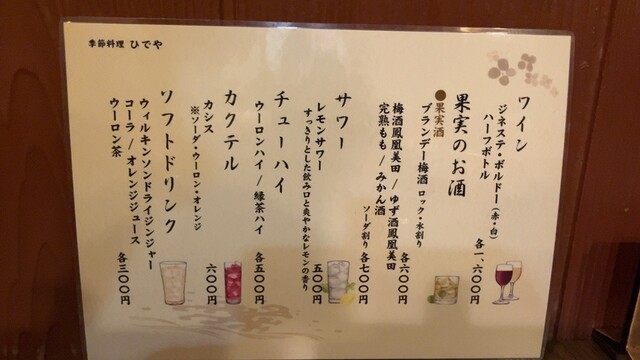 季節料理 ひでや
ワイン
ジネステ・ボルドー(赤・白)
ハーフボトル
各一、六〇〇円
果実のお酒
●果実酒
ブランデー梅酒 ロック・水割り
各六〇〇円
ソーダ割り 各七〇〇円
梅酒鳳凰美田/ゆず酒鳳凰美田
完熟もも/みかん酒
サワー
レモンサワー
すっきりとした飲み口と爽やかなレモンの香り
五〇〇円
チューハイ
ウーロンハイ/緑茶ハイ
各五〇〇円
カクテル
カシス
※ソーダ・ウーロン・オレンジ
六〇〇円
ソフトドリンク
ウィルキンソンドライジンジャー
コーラ/オレンジジュース
ウーロン茶
各三〇〇円